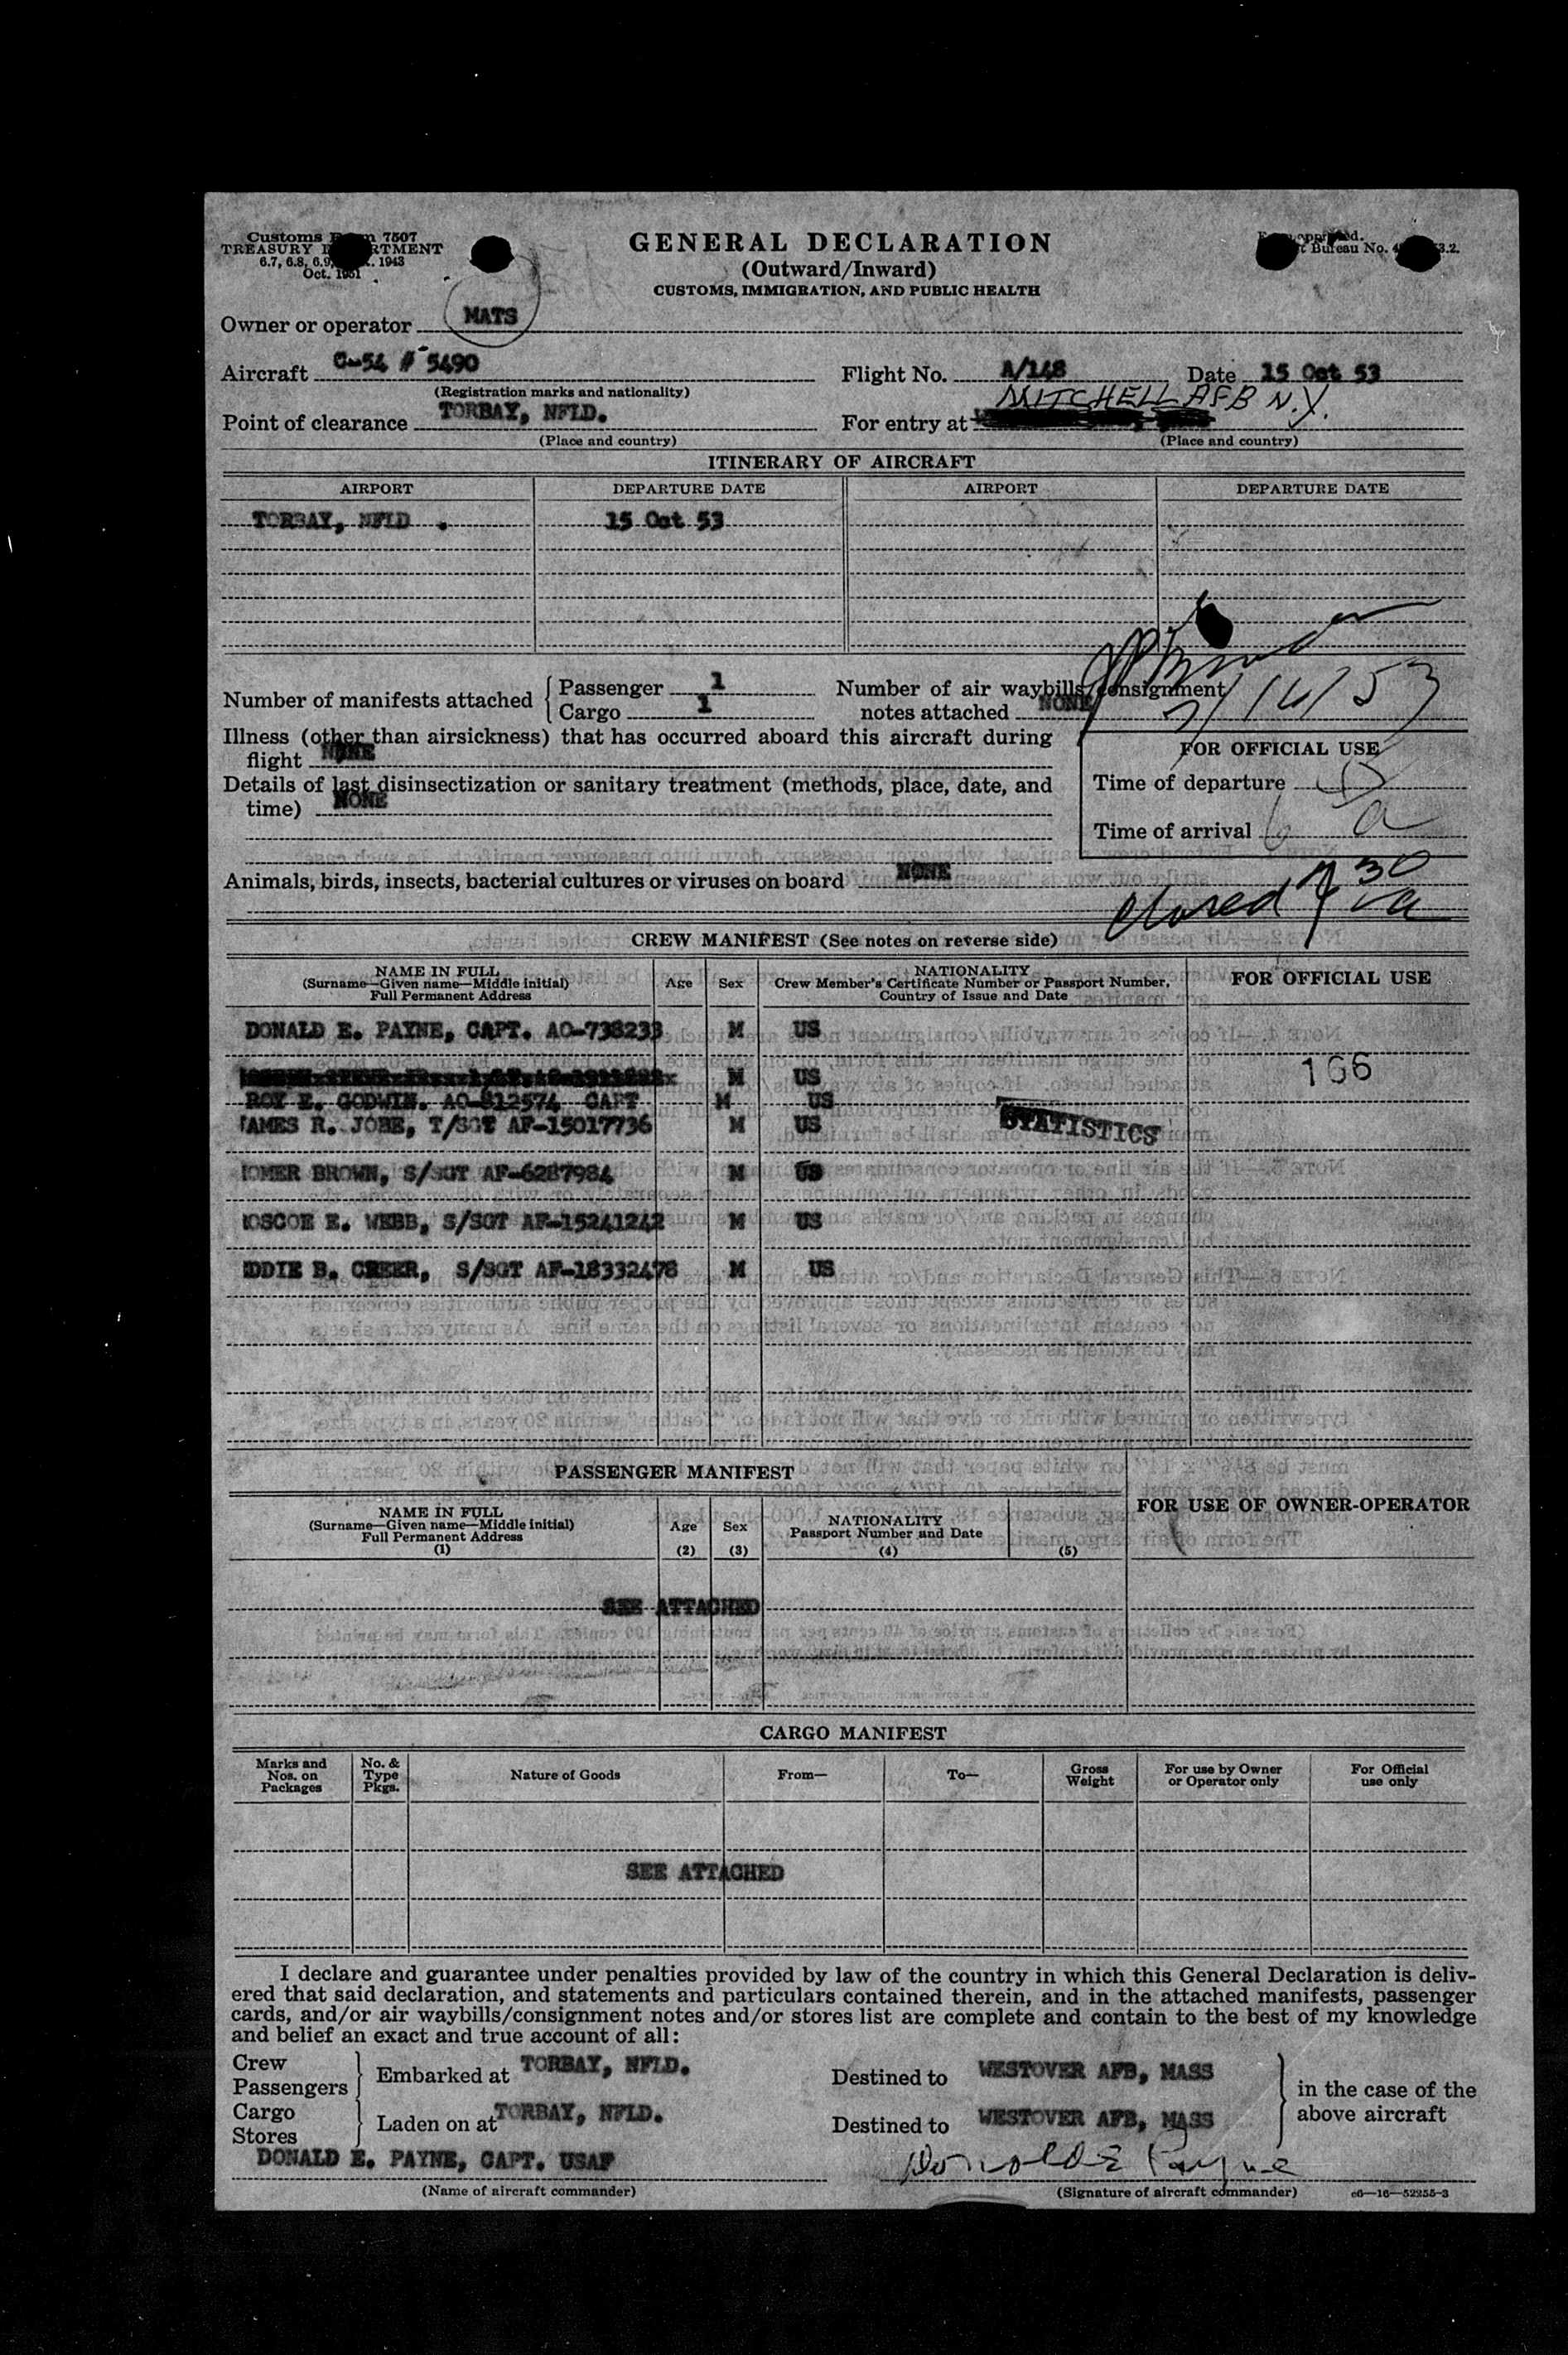 Customs Form 7507
TREASURY DEPARTMENT
6.7, 6.8, 6.9, 1943
Oct. 1951
GENERAL DECLARATION
(Outward/Inward)
CUSTOMS, IMMIGRATION, AND PUBLIC HEALTH
Bureau No.
Owner or operator MATS
Aircraft C-54 # 5490 Flight No. A/148 Date 15 Oct 53
(Registration marks and nationality)
MITCHELL AFB N.Y.
Point of clearance TORBAY, NFLD. For entry at
(Place and country) (Place and country)
ITINERARY OF AIRCRAFT
AIRPORT DEPARTURE DATE AIRPORT DEPARTURE DATE
TORBAY, NFLD . 15 Oct 53
Number of manifests attached Passenger 1 Number of air waybills/consignment
Cargo 1 notes attached NONE
Illness (other than airsickness) that has occurred aboard this aircraft during
flight NONE
FOR OFFICIAL USE
Details of last disinsectization or sanitary treatment (methods, place, date, and
time) NONE
Time of departure
Time of arrival
Animals, birds, insects, bacterial cultures or viruses on board NONE
closed 7 30 a
CREW MANIFEST (See notes on reverse side)
NAME IN FULL Age Sex NATIONALITY FOR OFFICIAL USE
(Surname—Given name—Middle initial) Crew Member's Certificate Number or Passport Number,
Full Permanent Address Country of Issue and Date
DONALD E. PAYNE, CAPT. AO-738233 M US
M US 166
ROY E. GODWIN. AO-812574 CAPT M US
JAMES R. JOBE, T/SGT AF-15017736 M US STATISTICS
OMER BROWN, S/SGT AF-6287984 M US
OSCOE E. WEBB, S/SGT AF-15241242 M US
DDIE B. CREER, S/SGT AF-18332478 M US
PASSENGER MANIFEST
FOR USE OF OWNER-OPERATOR
NAME IN FULL Age Sex NATIONALITY
(Surname—Given name—Middle initial) Passport Number and Date
Full Permanent Address
(1) (2) (3) (4) (5)
SEE ATTACHED
CARGO MANIFEST
Marks and Nos. on Packages No. & Type Pkgs. Nature of Goods From— To— Gross Weight For use by Owner or Operator only For Official use only
SEE ATTACHED
I declare and guarantee under penalties provided by law of the country in which this General Declaration is deliv-
ered that said declaration, and statements and particulars contained therein, and in the attached manifests, passenger
cards, and/or air waybills/consignment notes and/or stores list are complete and contain to the best of my knowledge
and belief an exact and true account of all:
Crew
Passengers Embarked at TORBAY, NFLD. Destined to WESTOVER AFB, MASS in the case of the
Cargo
Stores Laden on at TORBAY, NFLD. Destined to WESTOVER AFB, MASS above aircraft
DONALD E. PAYNE, CAPT. USAF Donald E Payne
(Name of aircraft commander) (Signature of aircraft commander) c6—16—52255-3